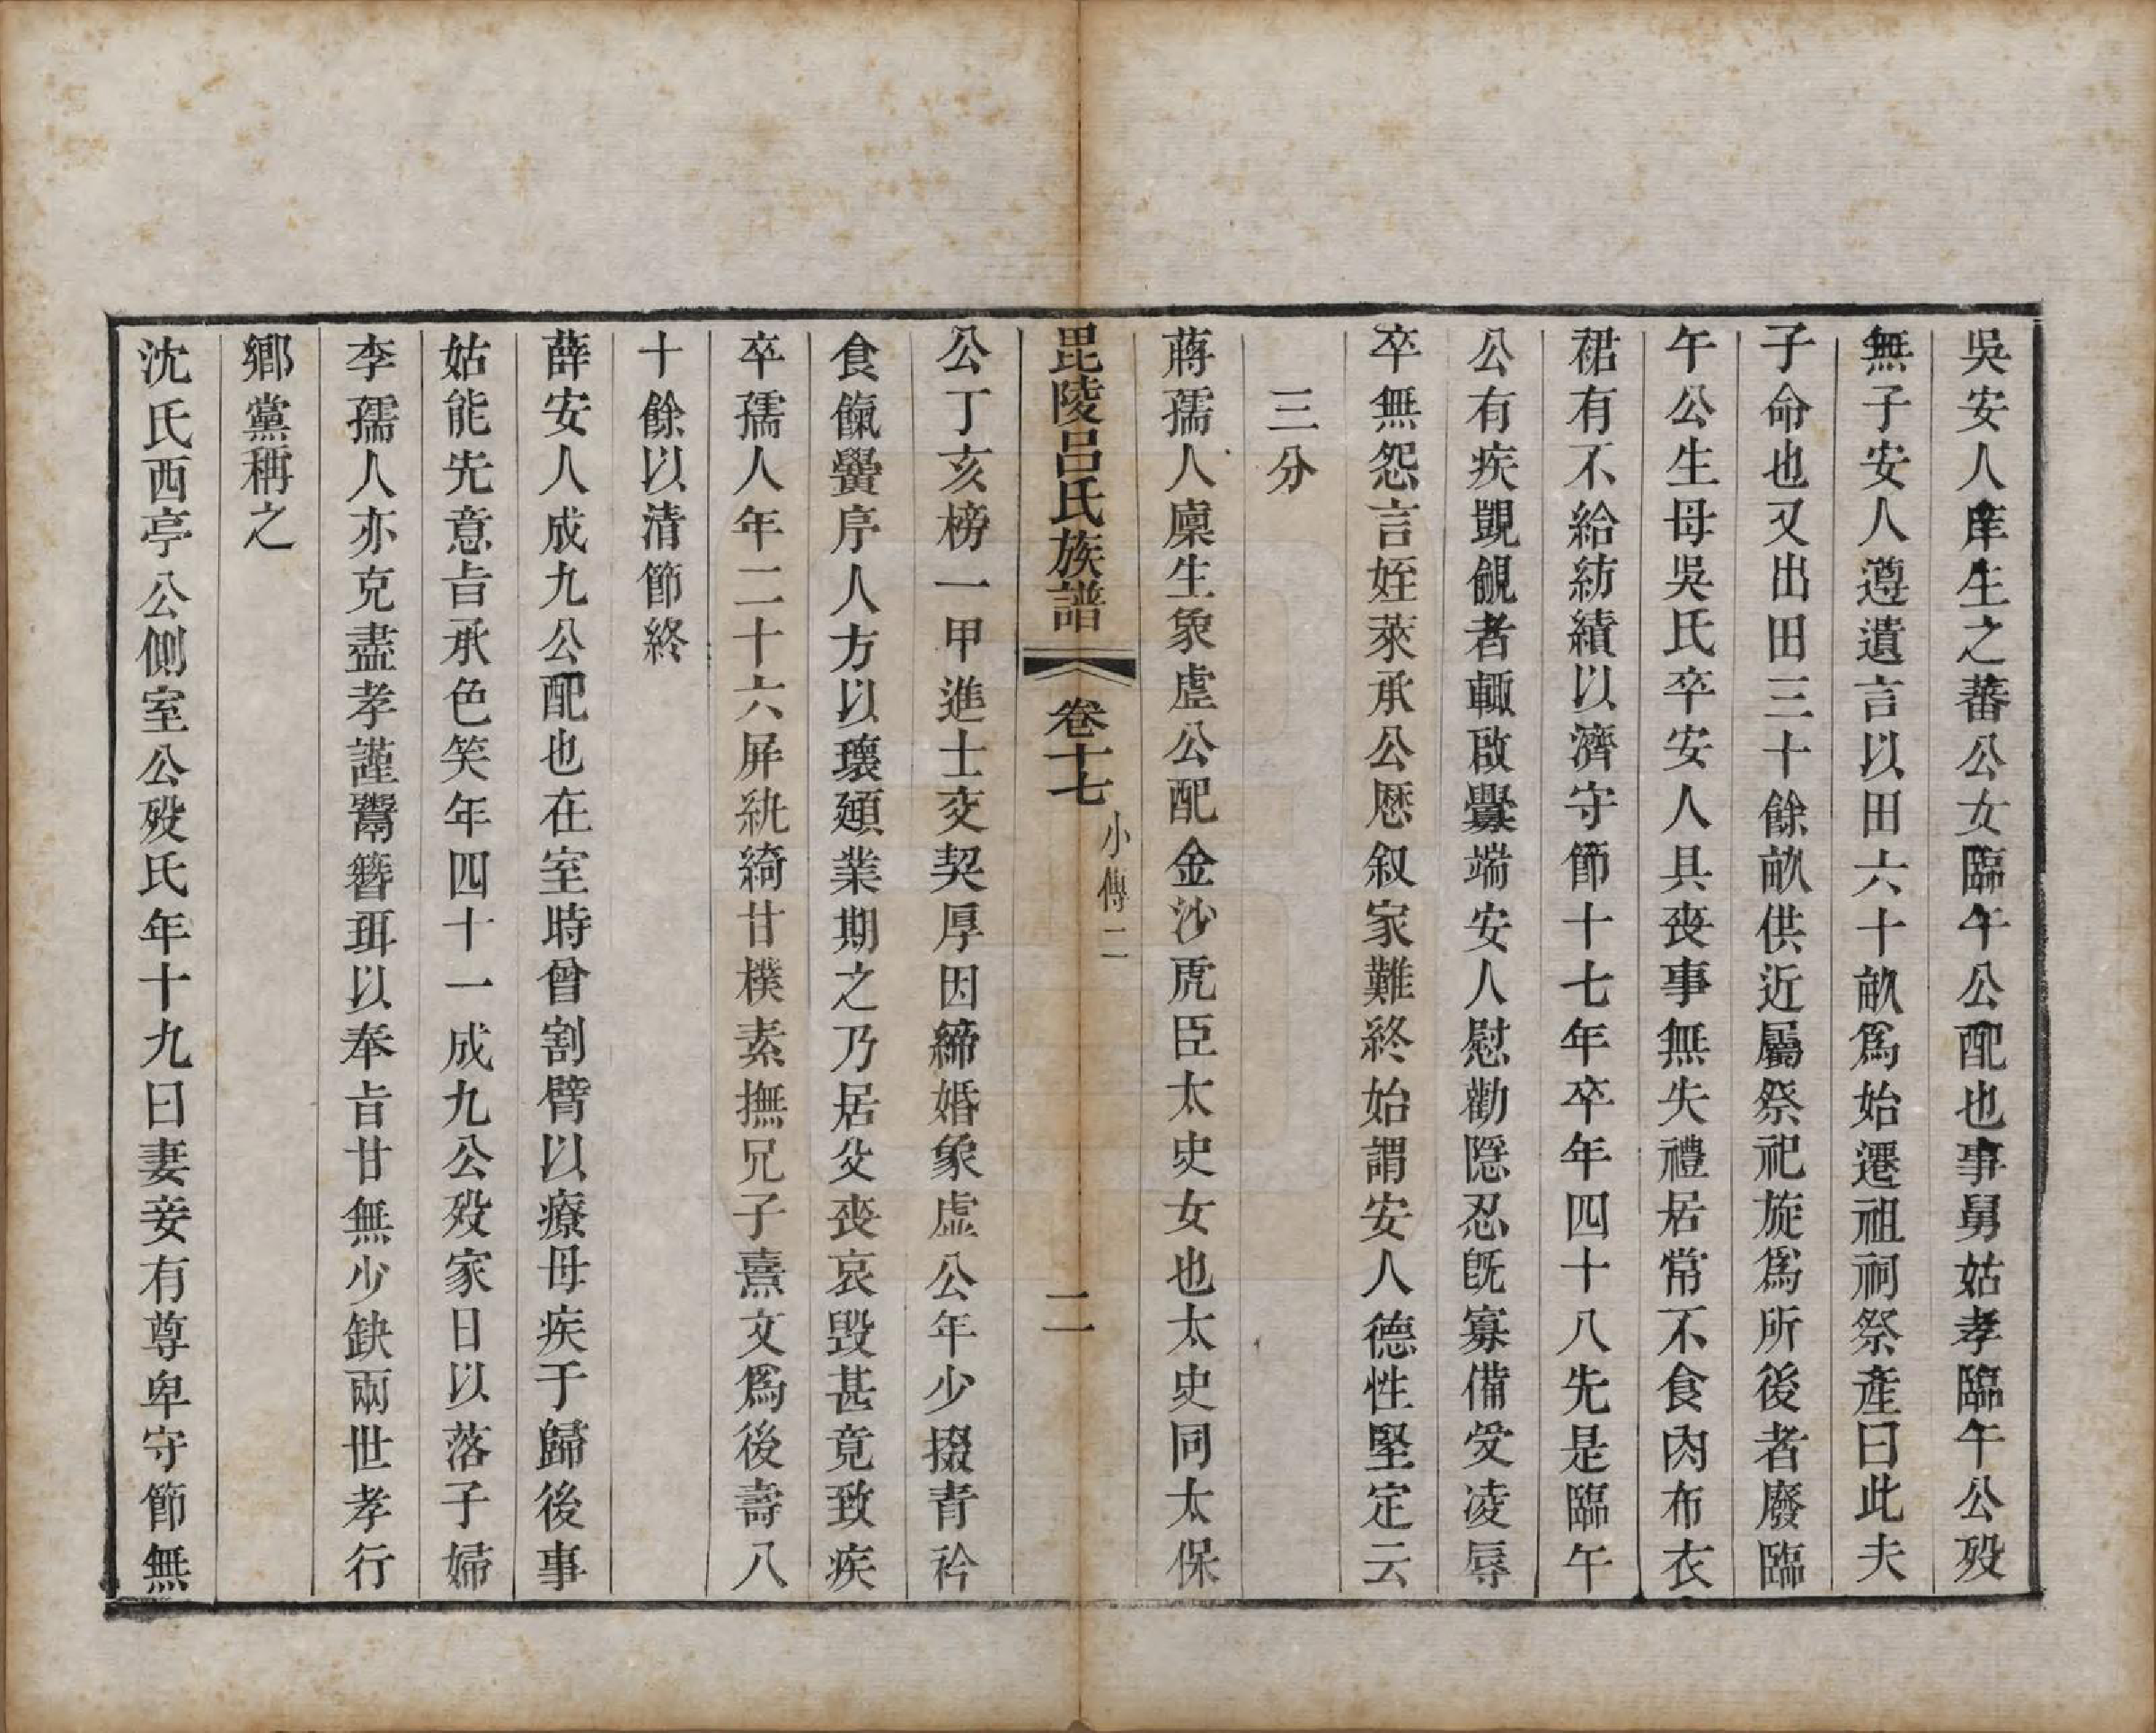 吳安人庠生之蕃公女臨午公配也事舅姑孝臨午公歿
無子安人遵遺言以田六十畝爲始遷祖祠祭產曰此夫
子命也又出田三十餘畝供近屬祭祀旋爲所後者廢臨
午公生母吳氏卒安人具喪事無失禮居常不食肉布衣
裙有不給紡績以濟守節十七年卒年四十八先是臨午
公有疾覬覦者輒啟釁端安人慰勸隱忍旣寡備受凌辱
卒無怨言姪萊承公歷叙家難終始謂安人德性堅定云
三分
蔣孺人廩生象虛公配金沙虎臣太史女也太史同太保
毘陵呂氏族譜 卷十七 小傳二 二
公丁亥榜一甲進士交契厚因締婚象虛公年少掇青衿
食餼黌序人方以瓌頲業期之乃居父喪哀毀甚竟致疾
卒孺人年二十六屏紈綺甘樸素撫兄子熹文爲後壽八
十餘以清節終
薛安人成九公配也在室時曾割臂以療母疾于歸後事
姑能先意旨承色笑年四十一成九公歿家日以落子婦
李孺人亦克盡孝謹鬻簪珥以奉旨甘無少缺兩世孝行
鄉黨稱之
沈氏西亭公側室公歿氏年十九曰妻妾有尊卑守節無